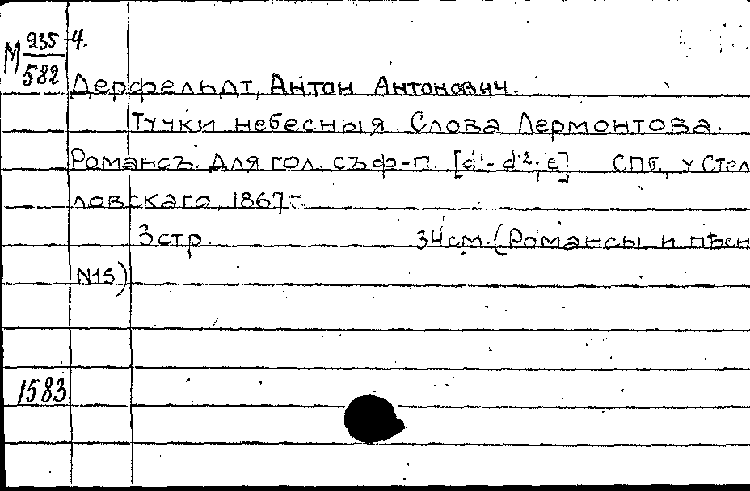 М 235/582 4.
Дерфельдт, Антон Антонович.
Тучки небесныя Слова Лермонтова.
Романсъ. Для гол. съ ф-п. [d¹-d²; e] СПб, у Стел
ловскаго, 1867 г.
3 стр. 34 см. (Романсы и пѣсн
N15)
1583